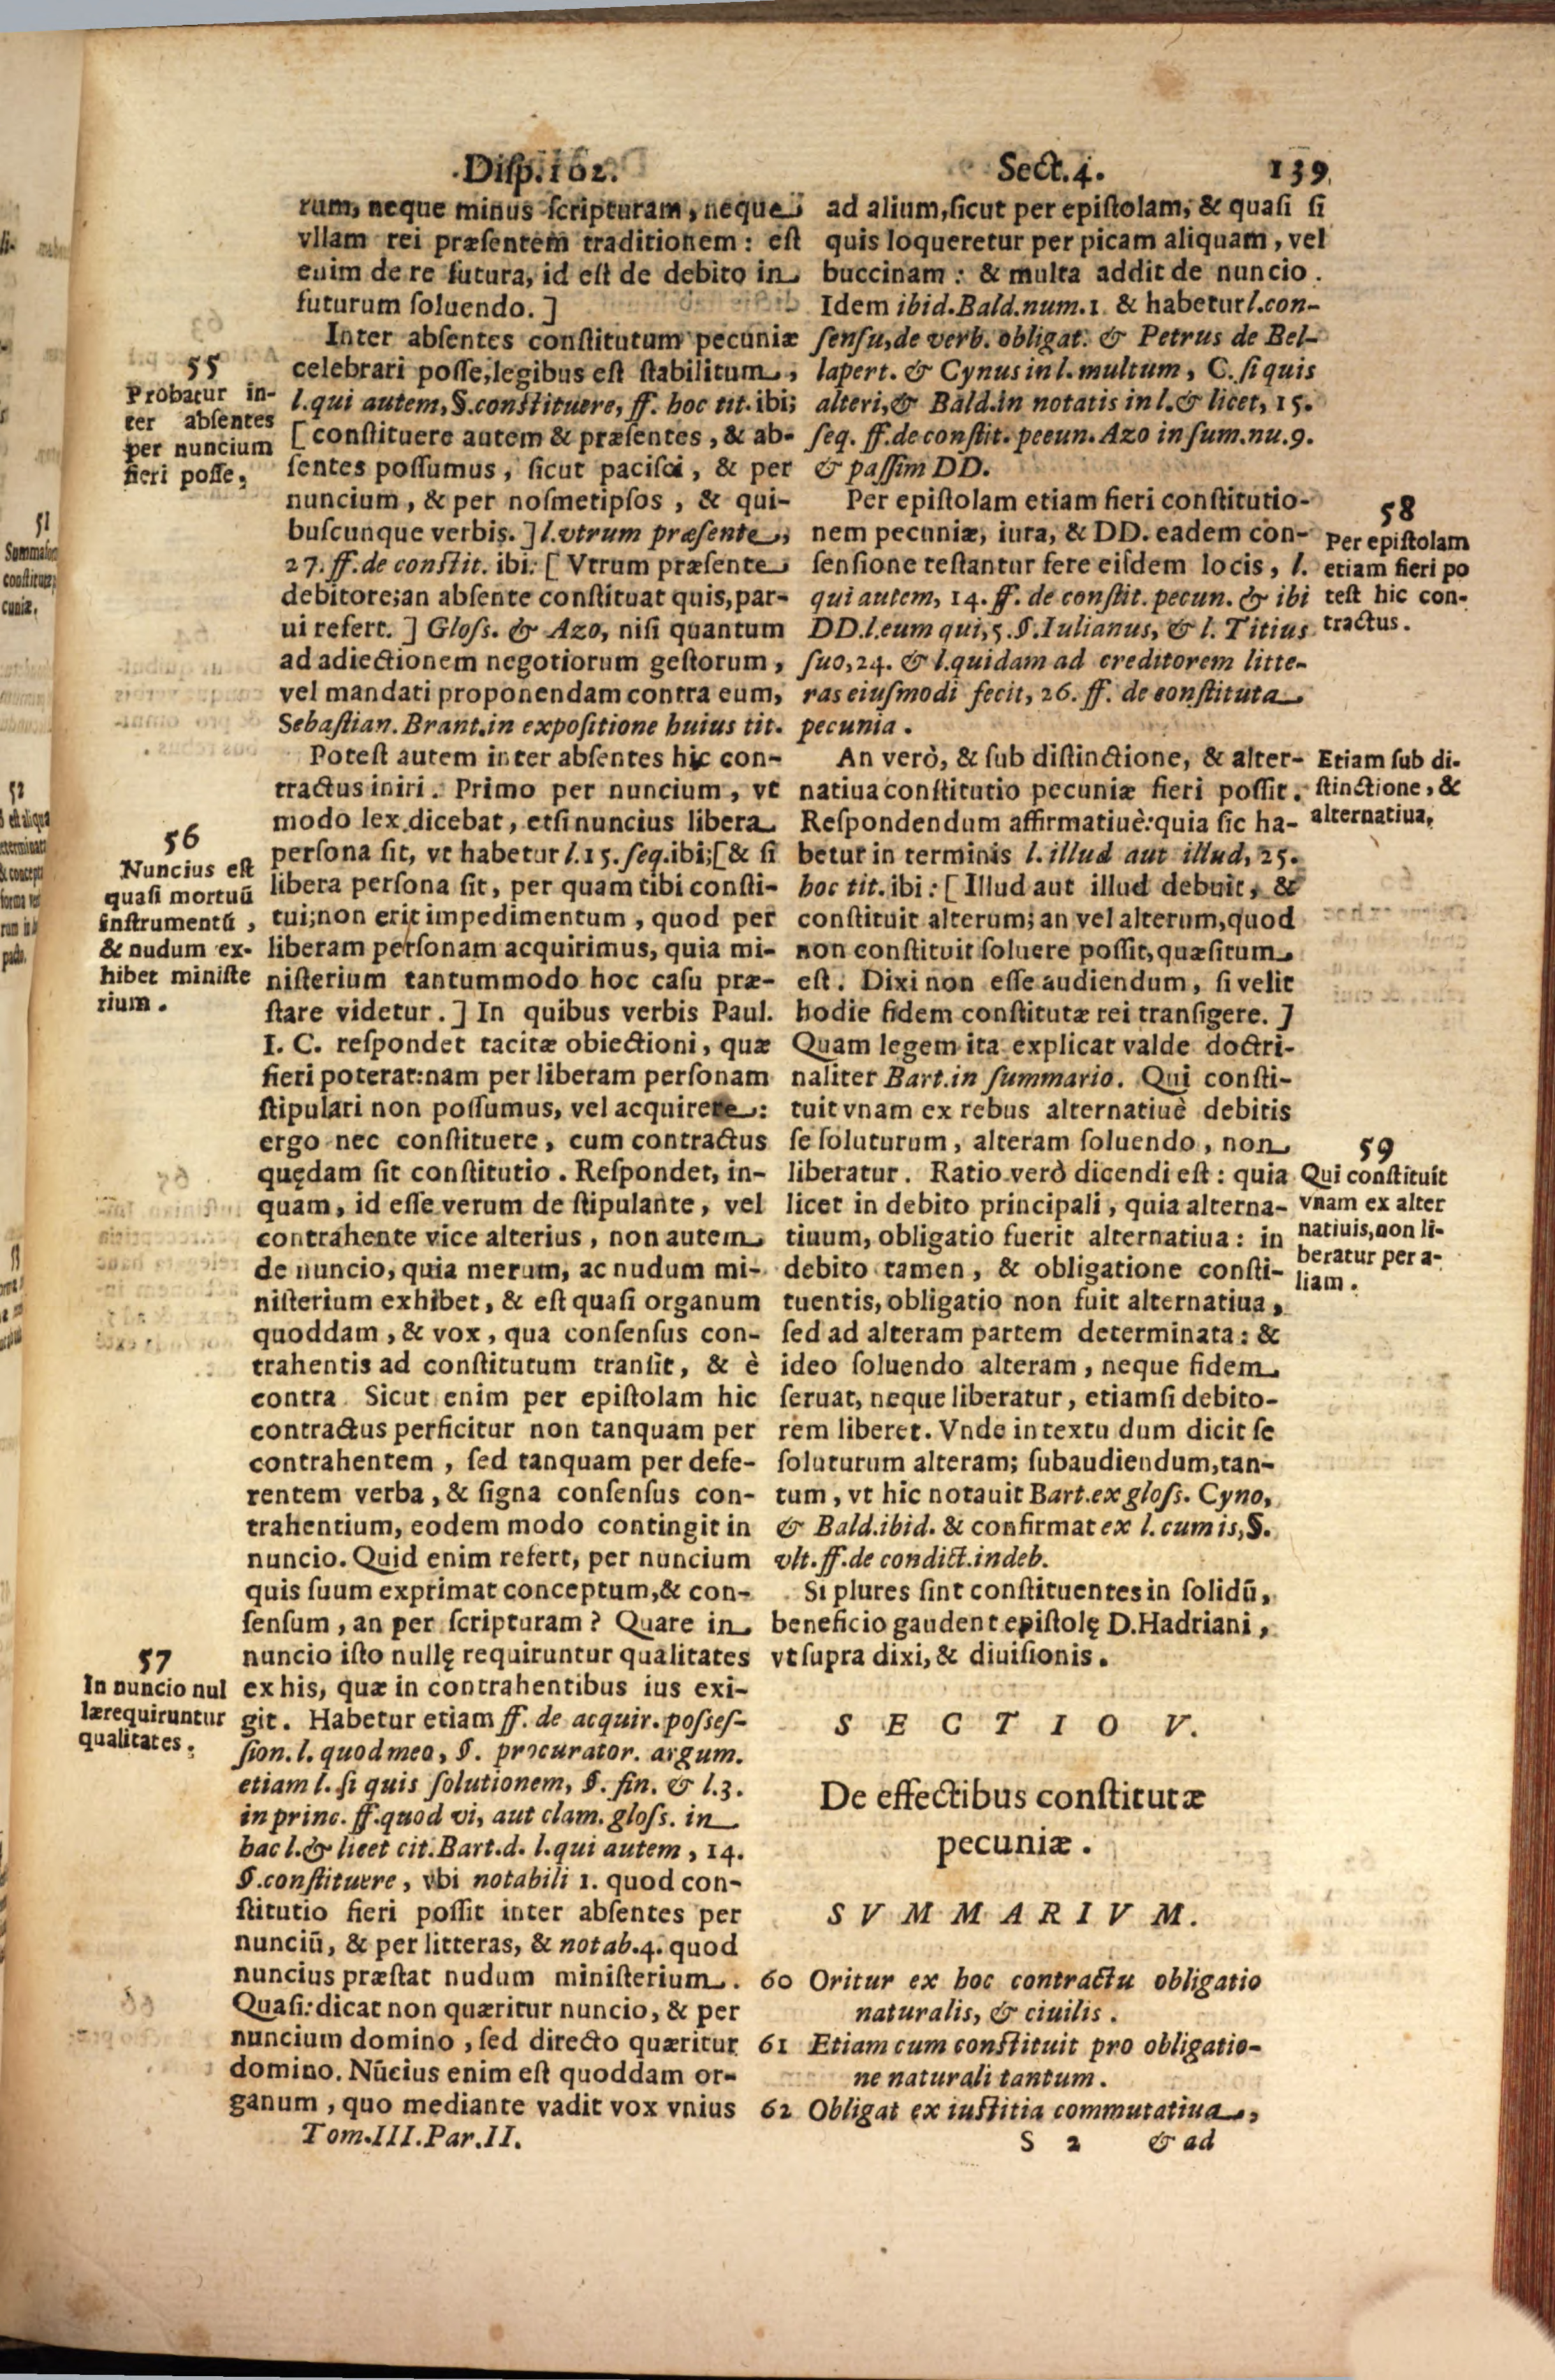 Disp. 162. Sect. 4. 139
rum, neque minus scripturam, neque
vllam rei præsentem traditionem: est
enim de re futura, id est de debito in
futurum soluendo. ]
Inter absentes constitutum pecuniæ
celebrari posse, legibus est stabilitum,
l. qui autem, §. constituere, ff. hoc tit. ibi;
[ constituere autem & præsentes, & ab-
sentes possumus, sicut pacisci, & per
nuncium, & per nosmetipsos, & qui-
buscunque verbis. ] l. vtrum præsente,
27. ff. de constit. ibi: [ Vtrum præsente
debitore; an absente constituat quis, par-
ui refert. ] Gloss. & Azo, nisi quantum
ad adiectionem negotiorum gestorum,
vel mandati proponendam contra eum,
Sebastian. Brant. in expositione huius tit.
Potest autem inter absentes hic con-
tractus iniri. Primo per nuncium, vt
modo lex dicebat, etsi nuncius libera
persona sit, vt habetur l. 15. seq. ibi; [ & si
libera persona sit, per quam tibi consti-
tui; non erit impedimentum, quod per
liberam personam acquirimus, quia mi-
nisterium tantummodo hoc casu præ-
stare videtur. ] In quibus verbis Paul.
I. C. respondet tacitæ obiectioni, quæ
fieri poterat: nam per liberam personam
stipulari non possumus, vel acquirere:
ergo nec constituere, cum contractus
quędam sit constitutio. Respondet, in-
quam, id esse verum de stipulante, vel
contrahente vice alterius, non autem
de nuncio, quia merum, ac nudum mi-
nisterium exhibet, & est quasi organum
quoddam, & vox, qua consensus con-
trahentis ad constitutum transit, & è
contra. Sicut enim per epistolam hic
contractus perficitur non tanquam per
contrahentem, sed tanquam per defe-
rentem verba, & signa consensus con-
trahentium, eodem modo contingit in
nuncio. Quid enim refert, per nuncium
quis suum exprimat conceptum, & con-
sensum, an per scripturam? Quare in
nuncio isto nullę requiruntur qualitates
ex his, quæ in contrahentibus ius exi-
git. Habetur etiam ff. de acquir. posses-
sion. l. quod meo, §. procurator. argum.
etiam l. si quis solutionem, §. fin. & l. 3.
in princ. ff. quod vi, aut clam. gloss. in
hac l. & licet cit. Bart. d. l. qui autem, 14.
§. constituere, vbi notabili 1. quod con-
stitutio fieri possit inter absentes per
nunciū, & per litteras, & notab. 4. quod
nuncius præstat nudum ministerium.
Quasi: dicat non quæritur nuncio, & per
nuncium domino, sed directo quæritur
domino. Nūcius enim est quoddam or-
ganum, quo mediante vadit vox vnius
Tom. III. Par. II.
55
Probatur in-
ter absentes
per nuncium
fieri posse,
56
Nuncius est
quasi mortuū
instrumentū,
& nudum ex-
hibet ministe
rium.
57
In nuncio nul
læ requiruntur
qualitates.
ad alium, sicut per epistolam, & quasi si
quis loqueretur per picam aliquam, vel
buccinam: & multa addit de nuncio.
Idem ibid. Bald. num. 1. & habetur l. con-
sensu, de verb. obligat. & Petrus de Bel-
lapert. & Cynus in l. multum, C. si quis
alteri, & Bald. in notatis in l. & licet, 15.
seq. ff. de constit. pecun. Azo in sum. nu. 9.
& passim DD.
Per epistolam etiam fieri constitutio-
nem pecuniæ, iura, & DD. eadem con-
sensione testantur fere eisdem locis, l.
qui autem, 14. ff. de constit. pecun. & ibi
DD. l. eum qui, 5. §. Iulianus, & l. Titius
suo, 24. & l. quidam ad creditorem litte-
ras eiusmodi fecit, 26. ff. de constituta
pecunia.
An verò, & sub distinctione, & alter-
natiua constitutio pecuniæ fieri possit.
Respondendum affirmatiuè: quia sic ha-
betur in terminis l. illud aut illud, 25.
hoc tit. ibi: [ Illud aut illud debuit, &
constituit alterum; an vel alterum, quod
non constituit soluere possit, quæsitum
est. Dixi non esse audiendum, si velit
hodie fidem constitutæ rei transigere. ]
Quam legem ita explicat valde doctri-
naliter Bart. in summario. Qui consti-
tuit vnam ex rebus alternatiuè debitis
se soluturum, alteram soluendo, non
liberatur. Ratio verò dicendi est: quia
licet in debito principali, quia alterna-
tiuum, obligatio fuerit alternatiua: in
debito tamen, & obligatione consti-
tuentis, obligatio non fuit alternatiua,
sed ad alteram partem determinata: &
ideo soluendo alteram, neque fidem
seruat, neque liberatur, etiamsi debito-
rem liberet. Vnde in textu dum dicit se
soluturum alteram; subaudiendum, tan-
tum, vt hic notauit Bart. ex gloss. Cyno,
& Bald. ibid. & confirmat ex l. cum is, §.
vlt. ff. de condict. indeb.
Si plures sint constituentes in solidū,
beneficio gaudent epistolę D. Hadriani,
vt supra dixi, & diuisionis.
58
Per epistolam
etiam fieri po
test hic con-
tractus.
Etiam sub di-
stinctione, &
alternatiua,
59
Qui constituit
vnam ex alter
natiuis, non li-
beratur per a-
liam.
SECTIO V.
De effectibus constitutæ
pecuniæ.
SVMMARIVM.
60 Oritur ex hoc contractu obligatio
naturalis, & ciuilis.
61 Etiam cum constituit pro obligatio-
ne naturali tantum.
62 Obligat ex iustitia commutatiua,
S 2 & ad